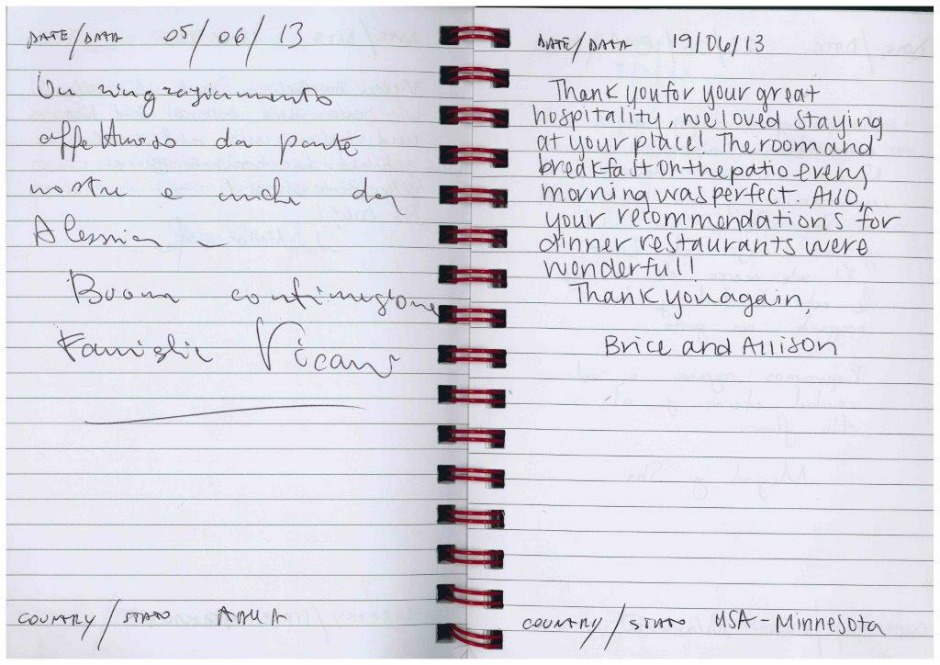 DATE/DATA 05/06/13
Un ringraziamento
affettuoso da parte
nostra e anche da
Alessia –
Buona continuazione
Famiglia
COUNTRY/STATO
DATE/DATA 19/06/13
Thank you for your great
hospitality, we loved staying
at your place! The room and
breakfast on the patio every
morning was perfect. Also,
your recommendations for
dinner restaurants were
wonderful!
Thank you again,
Brice and Allison
COUNTRY/STATO USA - Minnesota